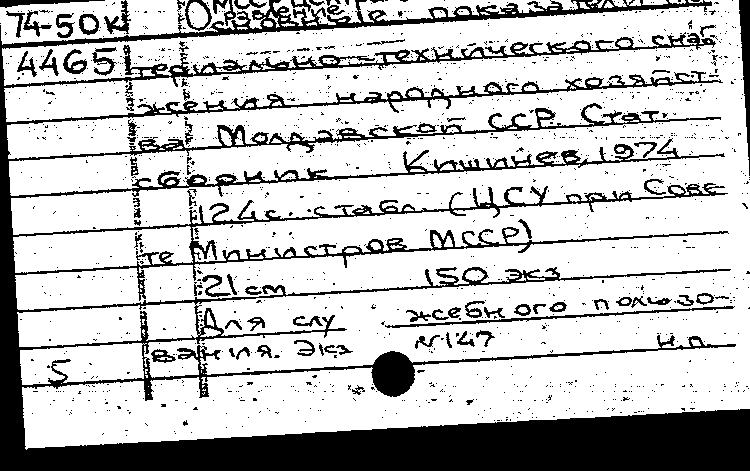 74-50к О показатели ма-
4465 териально-технического снаб
жения народного хозяйст-
ва Молдавской ССР. Стат.
сборник. Кишинев, 1974
124с. с табл. (ЦСУ при Сове
те Министров МССР)
21 см 150 экз
Для слу жебного пользо-
вания. Экз №147 Н.п.
5